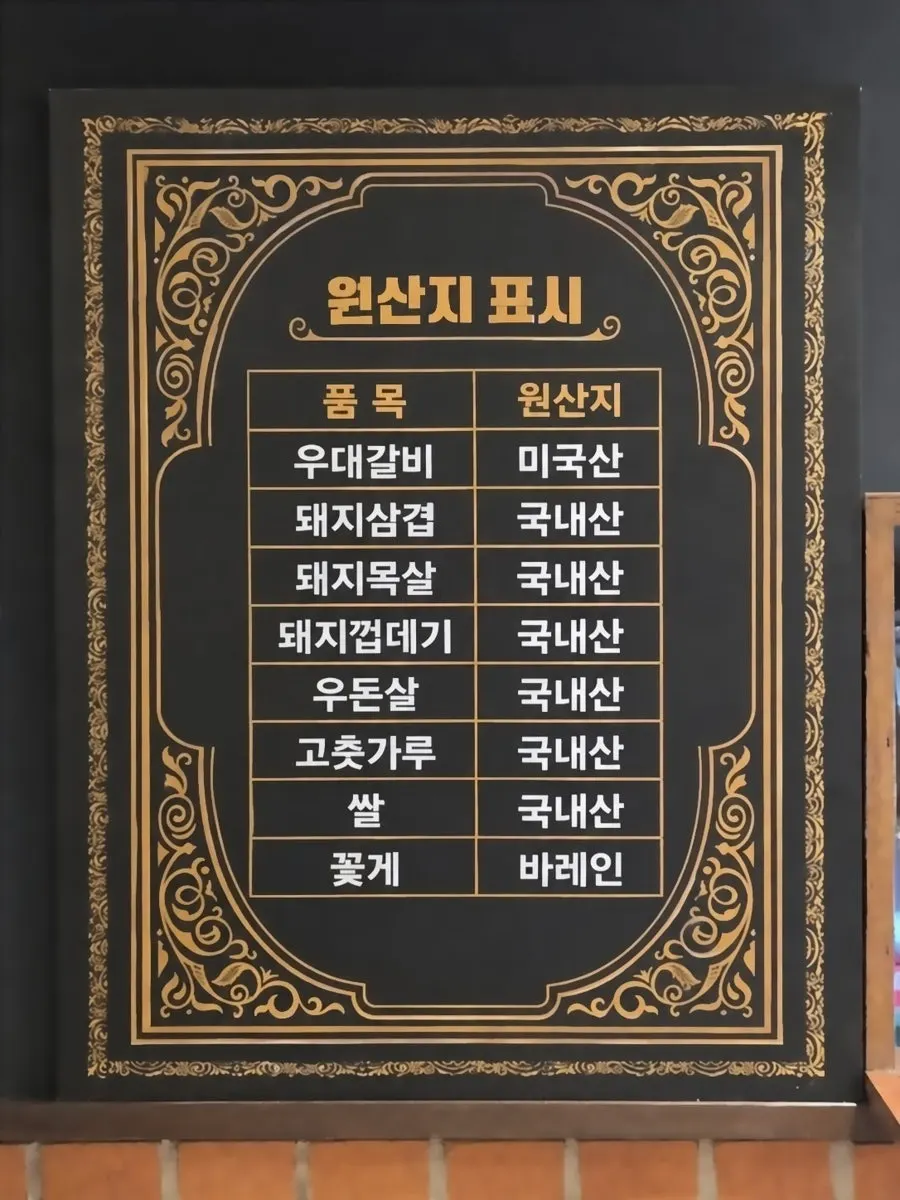 원산지 표시
품 목 원산지
우대갈비 미국산
돼지삼겹 국내산
돼지목살 국내산
돼지껍데기 국내산
우돈살 국내산
고춧가루 국내산
쌀 국내산
꽃게 바레인